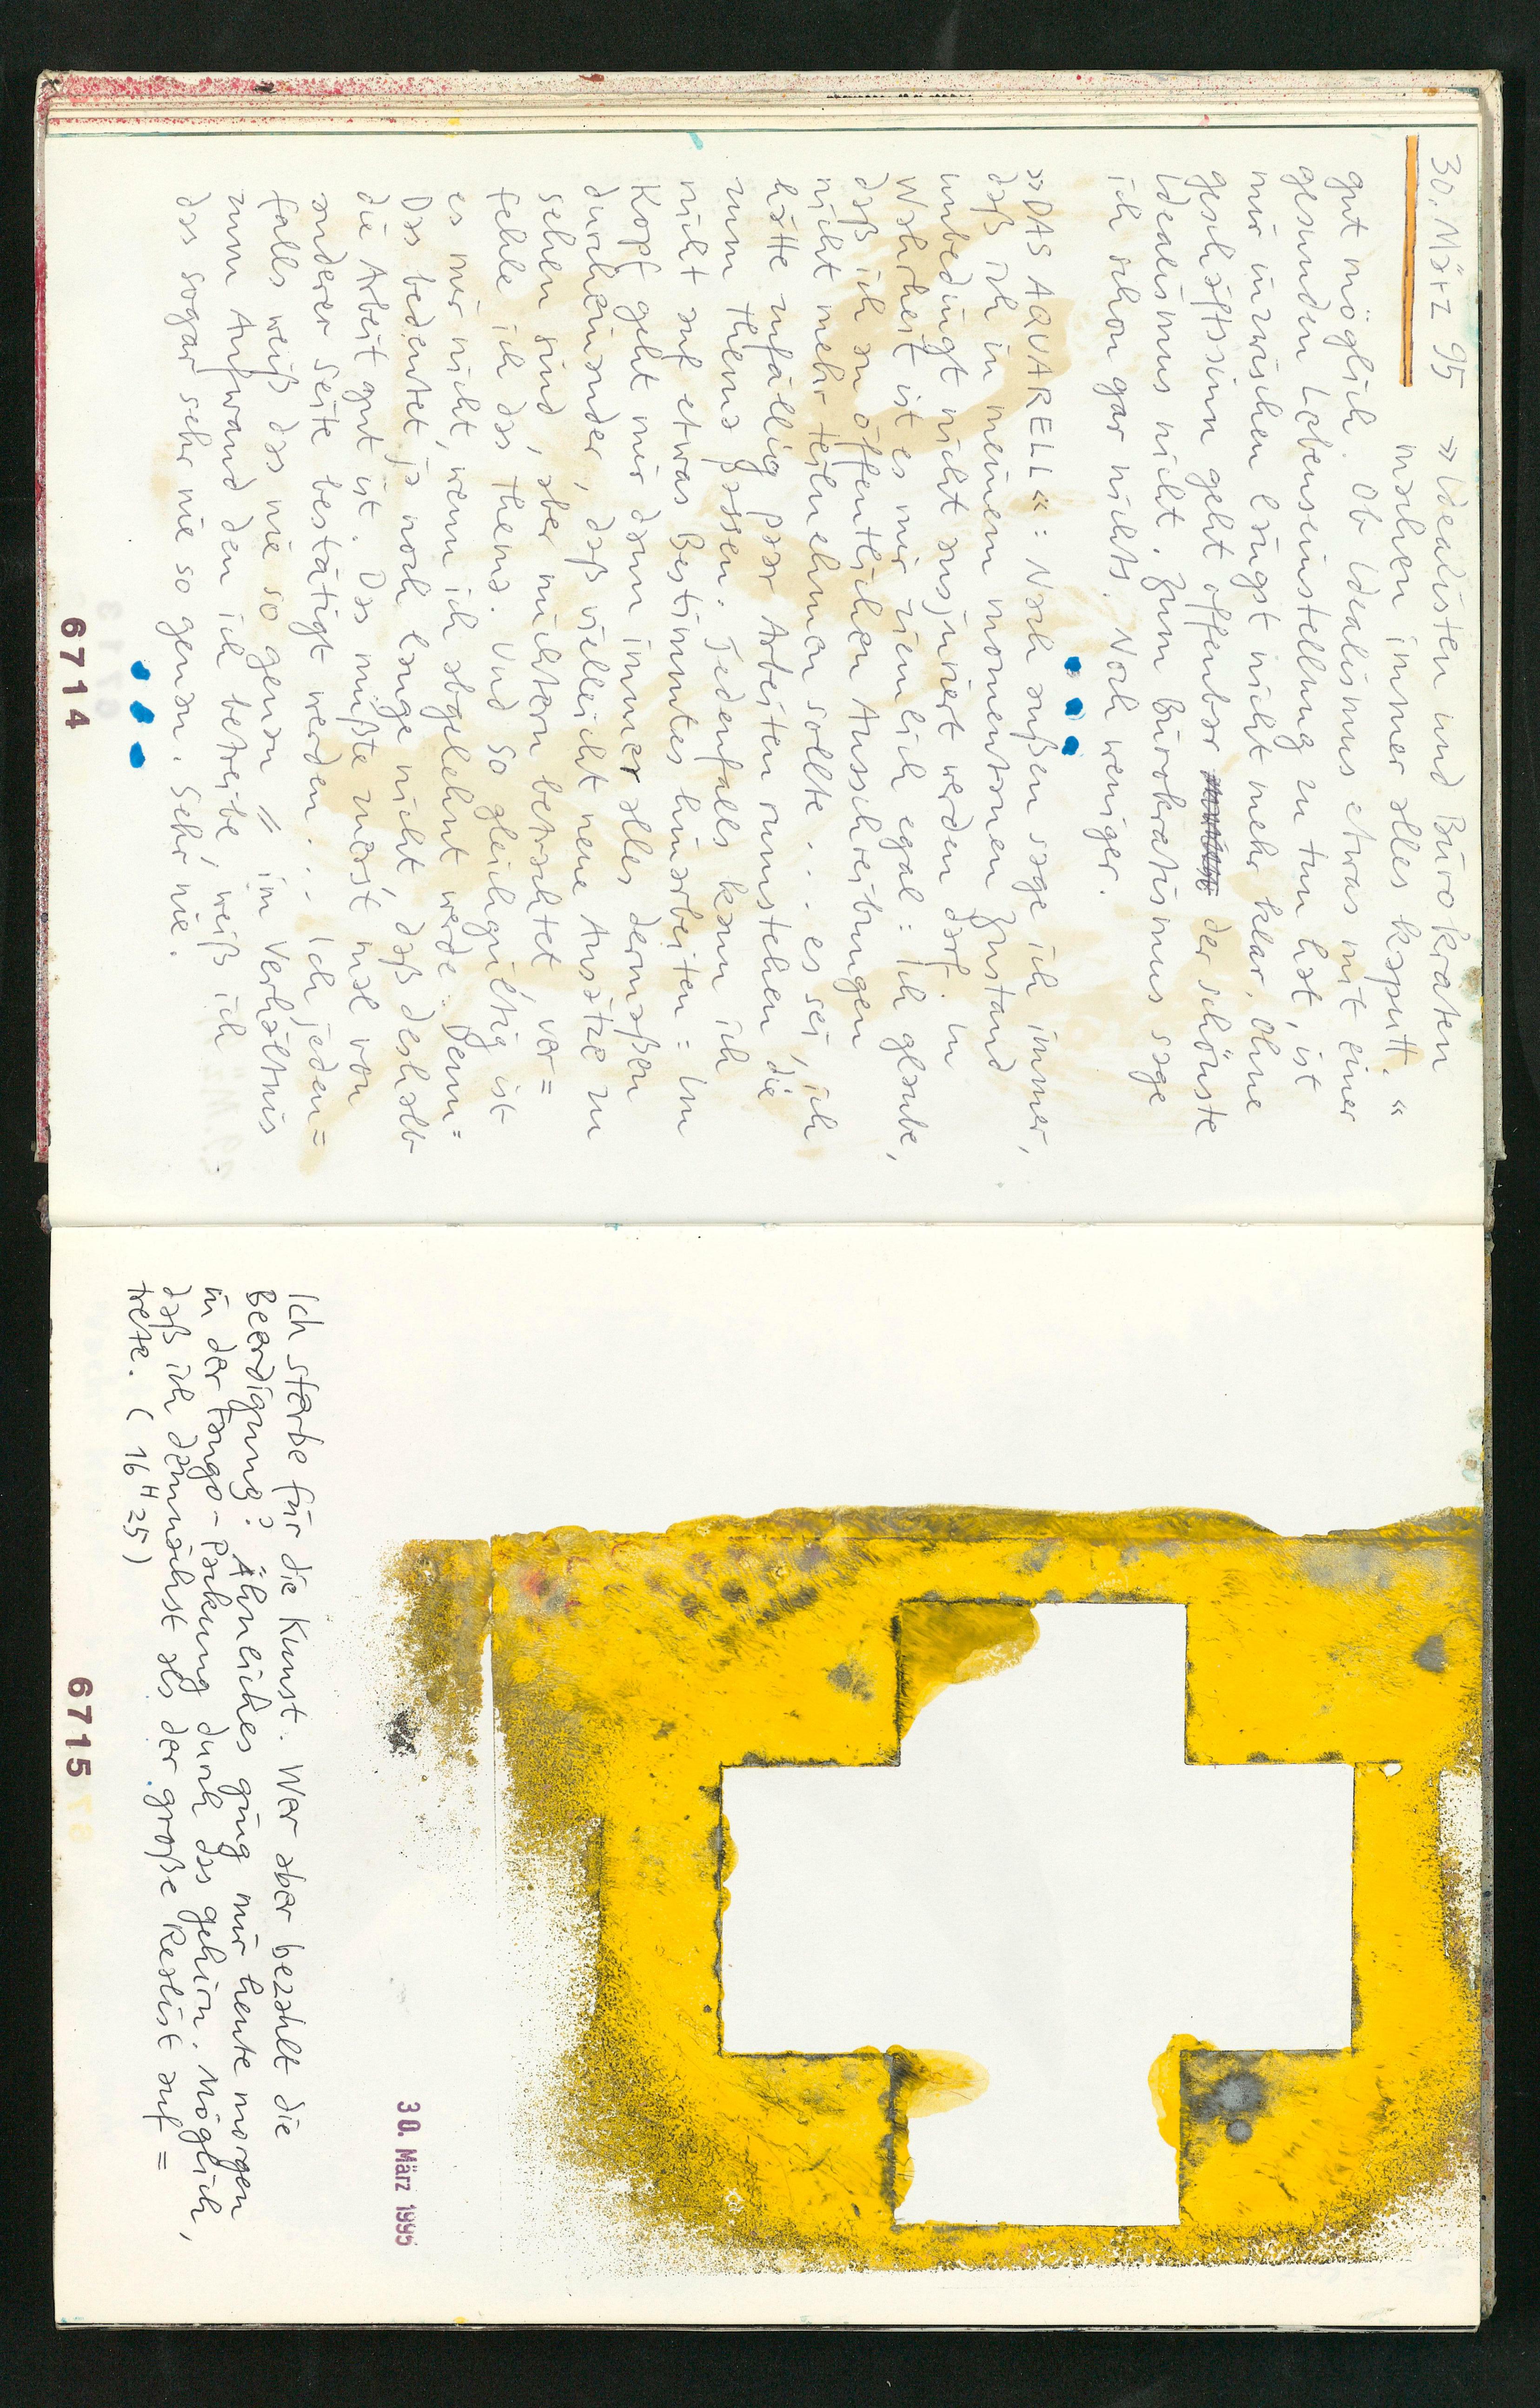 30. März 95 » Idealisten und Bürokraten
machen immer alles kaputt. «
gut möglich. Ob Idealismus etwas mit einer
gesunden Lebenseinstellung zu tun hat, ist
mir inzwischen längst nicht mehr klar. Ohne
geschäftssinn geht offenbar der schönste
Idealismus nicht. Zum Bürokratismus sage
ich schon gar nichts. Noch weniger.
»DAS AQUARELL«: Nach außen sage ich immer,
daß ich in meinem momentanen Zustand
unbedingt nicht ausjuriert werden darf. In
Wahrheit ist es mir ziemlich egal: Ich glaube,
daß ich an öffentlichen Ausschreibungen
nicht mehr teilnehmen sollte ... es sei, ich
hätte zufällig paar Arbeiten rumstehen die
zum Thema passen. Jedenfalls kann ich
nicht auf etwas Bestimmtes hinarbeiten: Im
Kopf geht mir dann immer alles dermaßen
durcheinander, daß vielleicht neue Ansätze zu
sehen sind, aber nüchtern betrachtet ver=
fehle ich das Thema. Und so gleichgültig ist
es mir nicht, wenn ich abgelehnt werde. Denn:
Das bedeutet ja noch lange nicht, daß deshalb
die Arbeit gut ist. Das müßte zuerst mal von
anderer Seite bestätigt werden ... Ich jeden=
falls weiß das nie so genau // im Verhältnis
zum Aufwand den ich betreibe, weiß ich
das sogar sehr nie so genau. Sehr nie.
6714
30. März 1995
Ich sterbe für die Kunst. Wer aber bezahlt die
Beerdigung? Ähnliches ging mir heute morgen
in der Fango-Packung durch das gehirn. Möglich,
daß ich demnächst als der große Realist auf=
trete. (16 H 25)
6715